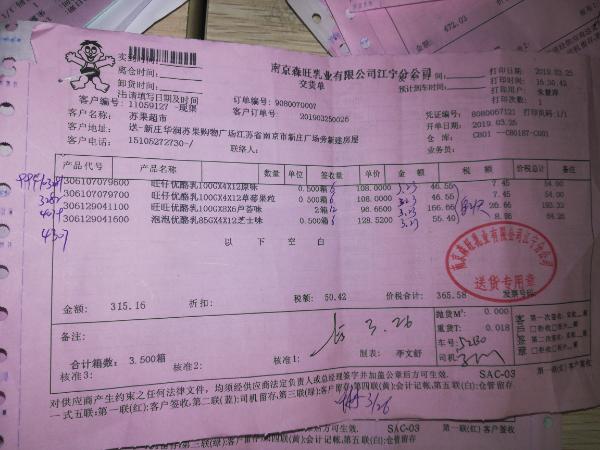 472.03
南京森旺乳业有限公司江宁分公司
交货单
实
离仓时间:
卸货时间:
注请填写日期及时间
预计到车时间:
打印日期: 2019.03.25
打印时间: 16:30:42
打印人:
打印次数: 1
客户编号: 11059127 -现款
订单编号: 9080070007
凭证编号: 8080067121 打印页码:1/1
客户名称: 苏果超市
客户订单号: 201903250026
开单日期: 2019.03.25
客户地址: 送-新庄华润苏果购物广场江苏省南京市新庄广场旁新建房屋
仓库: CB01
客户电话: 15105272730-/
联系人:
业务员:
产品代号 产品名称 数量 单位 签收量 单价 金额 税额 价税总计 备注
306107079600 旺仔优酪乳100GX4X12原味 0.500箱 108.0000 46.55 7.45 54.00
306107079100 旺仔优酪乳100GX4X12草莓果粒 0.500箱 108.0000 46.55 7.45 54.00
306129041100 旺旺优酪乳100GX8X6芦荟味 2箱 96.6600 166.66 26.66 193.32
306129041600 泡泡优酪乳85GX4X12芝士味 0.500箱 128.5200 55.40 8.86 64.26
以下空白
南京森旺乳业有限公司江宁分公司
送货专用章
金额: 315.16 折扣: 税额: 50.42 价税合计: 365.58 发票号码:
备注:
3.26
抛货M³: 0.000
重货T: 0.018
车号:
司机:
客
签
章
合计箱数: 3.500箱
核准3: 核准2: 核准1: 制表: 李文舒
对供应商产生约束之任何法律文件，均须经供应商法定负责人或总经理签字并加盖公章后方可生效. SAC-03
一式五联:第一联(红):客户签收,第二联(蓝):司机留存,第三联(绿):客户留存,第四联(黄):会计记帐,第五联(白):仓管留存.
3/26
章后方可生效. SAC-03 第一联(红)客户签收
第四联(黄):会计记帐,第五联(白):仓管留存.